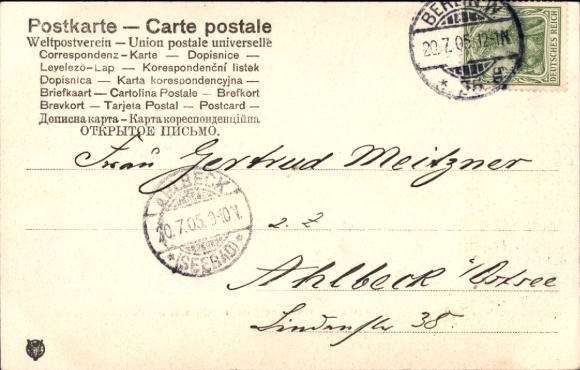 Postkarte — Carte postale
Weltpostverein — Union postale universelle
Correspondenz-Karte — Dopisnice —
Levelező-Lap — Korespondenční listek
Dopisnica — Karta korespondencyjna —
Briefkaart — Cartolina Postale — Brefkort
Brevkort — Tarjeta Postal — Postcard —
Дописна карта — Карта кореспонденційна
ОТКРЫТОЕ ПИСЬМО.
BERLIN W
20.7.05.12-1N
DEUTSCHES REICH
Frau Gertrud Meitzner
AHLBECK
20.7.05. 9-10 V.
* (SEEBAD) *
z. Z
Ahlbeck i/Ostsee
Lindenstr 38.